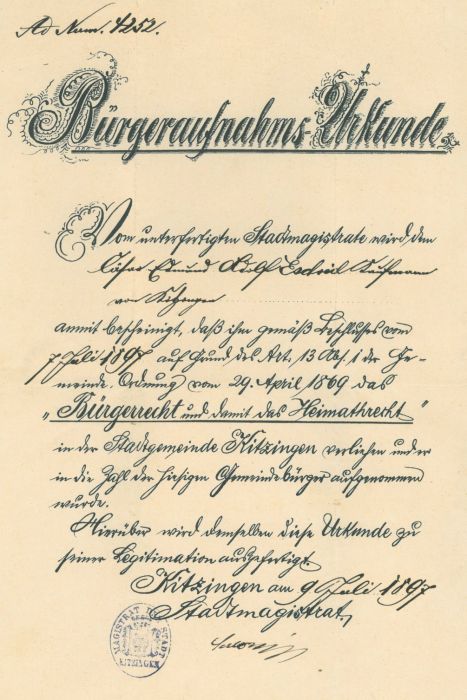 Ad Num. 4252.
Bürgeraufnahms-Urkunde
Vom unterfertigten Stadtmagistrate wird dem
Edmund Adolf Kaufmann
von Kitzingen
anmit bescheinigt, daß ihm gemäß Beschlusses vom
7 Juli 1897 auf Grund des Art. 13 Abs. 1 der Ge-
meinde-Ordnung vom 29. April 1869 das
„Bürgerrecht und damit das Heimathrecht"
in der Stadtgemeinde Kitzingen verliehen und er
in die Zahl der hiesigen Gemeindebürger aufgenommen
wurde.
Hierüber wird demselben diese Urkunde zu
seiner Legitimation ausgefertigt.
Kitzingen am 9 Juli 1897
Stadtmagistrat.
MAGISTRAT DER STADT
KITZINGEN